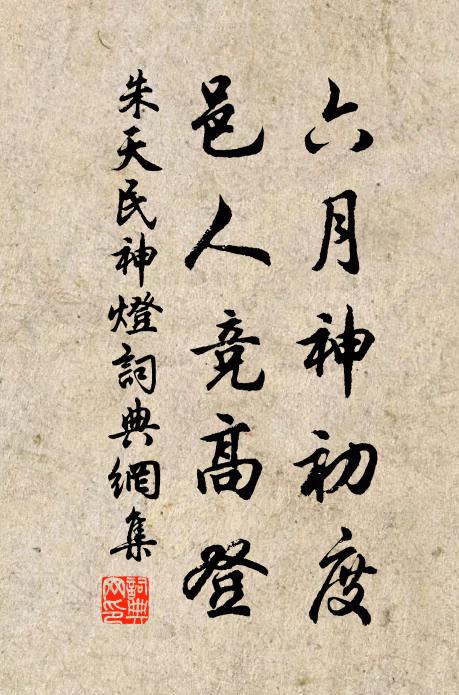 六月神初度
邑人竞高登
朱天民神燈詞典網集
詞典